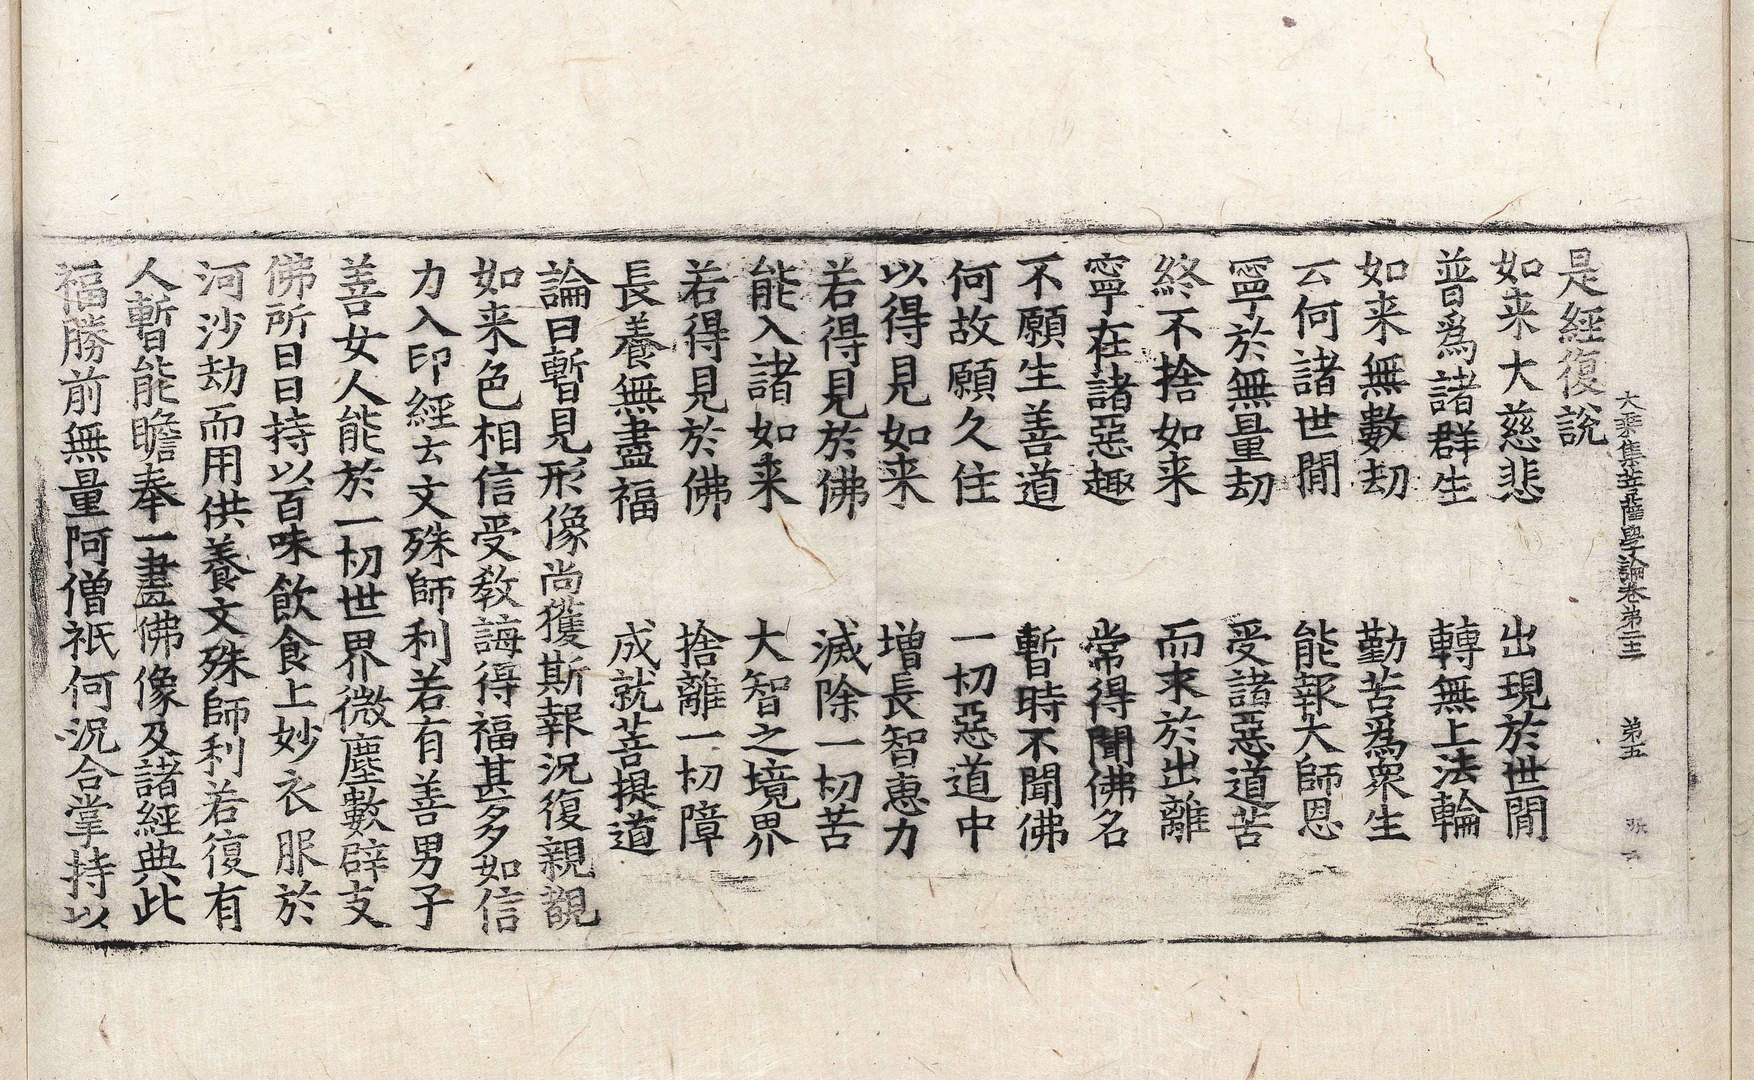 大乘集菩薩學論卷第二十三 第五
是經復說
如来大慈悲 出現於世間
普爲諸群生 轉無上法輪
如来無數劫 勤苦爲衆生
云何諸世間 能報大師恩
寧於無量劫 受諸惡道苦
終不捨如来 而求於出離
寧在諸惡趣 常得聞佛名
不願生善道 暫時不聞佛
何故願久住 一切惡道中
以得見如来 增長智惠力
若得見於佛 滅除一切苦
能入諸如来 大智之境界
若得見於佛 捨離一切障
長養無盡福 成就菩提道
論曰暫見形像尚獲斯報況復親覩
如来色相信受教誨得福甚多如信
力入印經云文殊師利若有善男子
善女人能於一切世界微塵數辟支
佛所日日持以百味飲食上妙衣服於
河沙劫而用供養文殊師利若復有
人暫能瞻奉一畫佛像及諸經典此
福勝前無量阿僧祇何況合掌持以